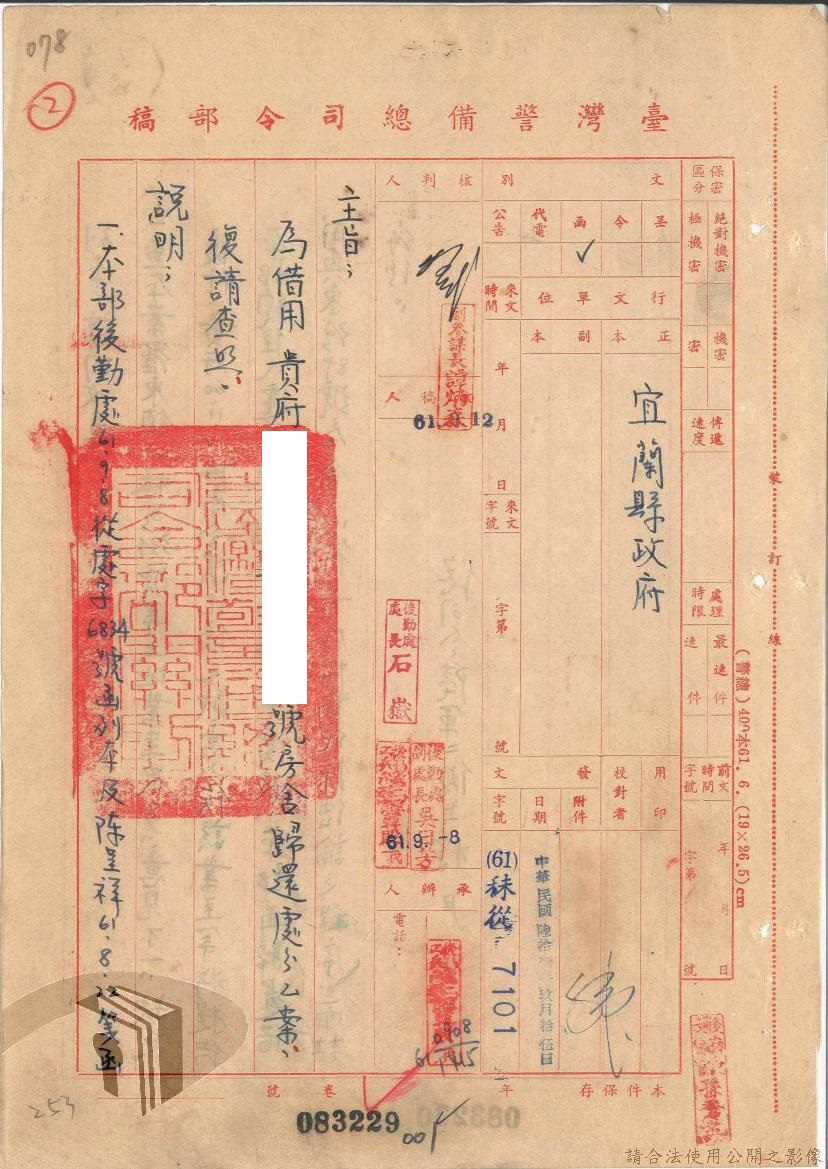 078
2
臺灣警備總司令部稿
保密區分
絕對機密
極機密
機密
密
傳遞速度
處理時限
最速件
速件
前文
時間
字號
年 月 日
字第 號
文別
呈
令
函
代電
公告
✓
行文單位
正本
副本
宜蘭縣政府
來文時間
年 月 日
來文字號
字第 號
用印
校對者
發文
附件
日期
字號
中華民國陸拾壹年玖月拾伍日
(61)
7101
核判人
副參謀長
61.9.12
稿人
後勤處處長石嶽
後勤處副處長
61.9.-8
承辦人
電話：
0908
1415
主旨：
為借用 貴府
號房舍歸還處分乙案，
復請查照。
說明：
一、本部後勤處61.9.8從處字6834號函副本及陳呈祥61.8.22箋函
本件保存 年
卷號
083229
001
253
裝訂線
400本61.6.(19×26.5)cm
請合法使用公開之影像